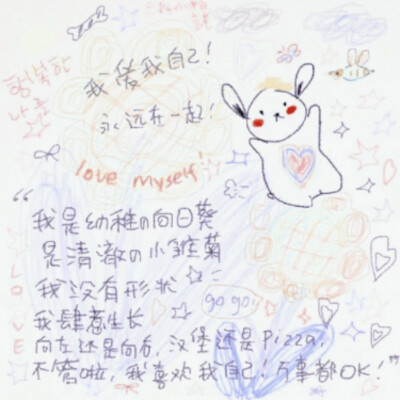 행복한
나를
我爱我自己!
永远在一起!
love myself!
“我是幼稚の向日葵
是清澈の小雏菊
我没有形状
go go!!
我肆意生长
向左还是向右,汉堡还是Pizza,
不管啦,我喜欢我自己,万事都OK!”
LOVE